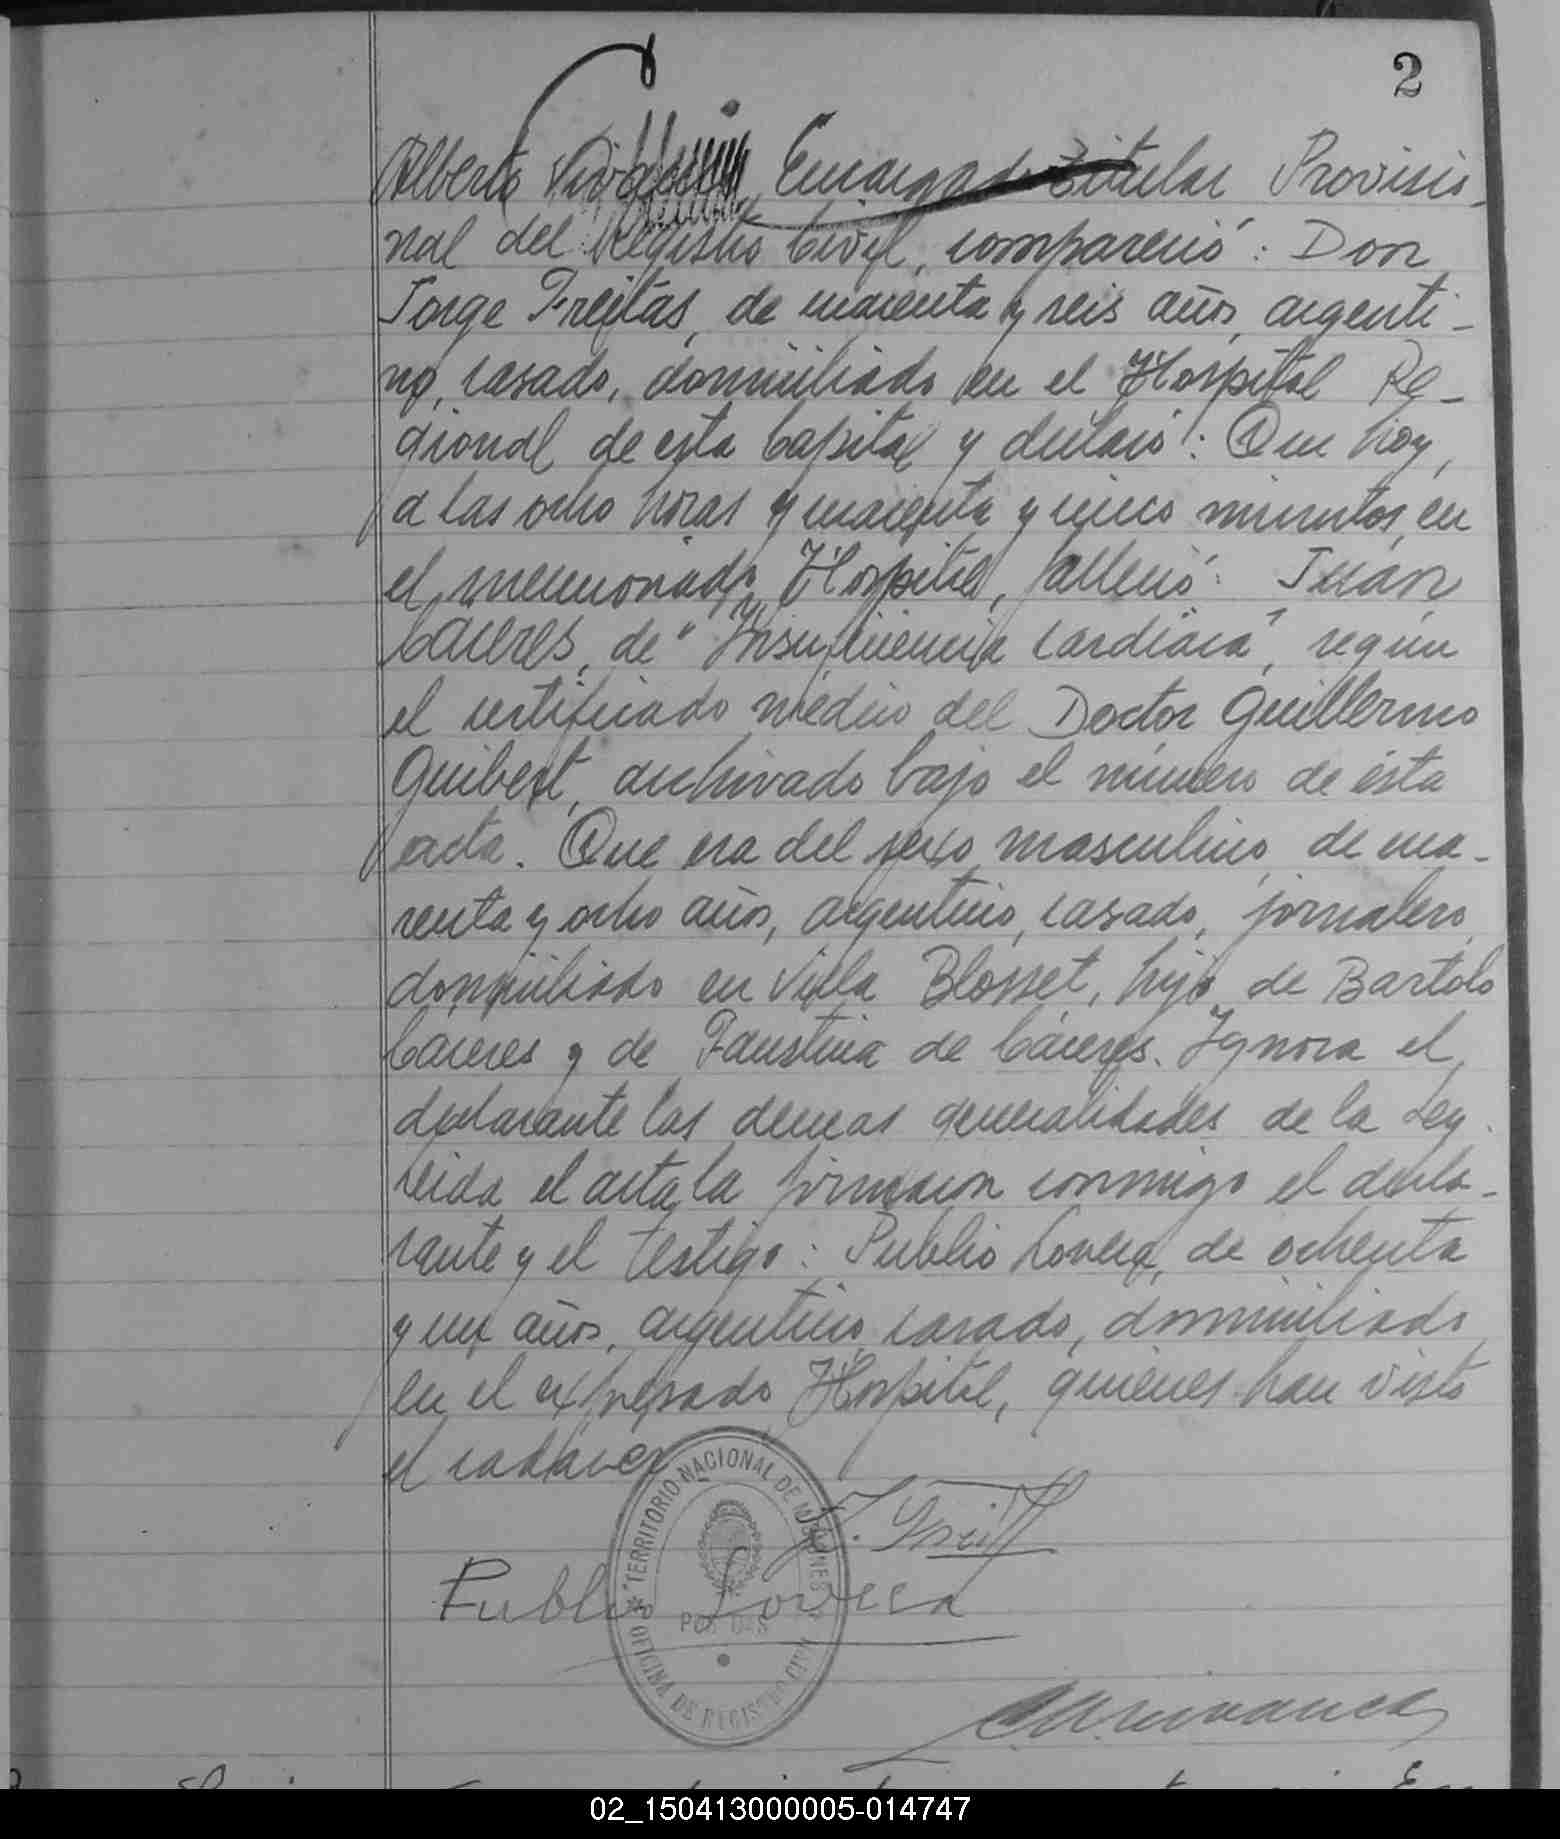 2
Alberto Encargado Titular Provisio-
nal del Registro Civil, compareció: Don
Jorge Freitas, de cuarenta y seis años, argenti-
no, casado, domiciliado en el Hospital Re-
gional de esta Capital y declaró: Que hoy,
a las ocho horas y cuarenta y cinco minutos, en
el mencionado Hospital, falleció: Juan
Cáceres, de "Insuficiencia cardíaca", según
el certificado médico del Doctor Guillermo
Guibert, archivado bajo el número de ésta
acta. Que era del sexo masculino, de cua-
renta y ocho años, argentino, casado, jornalero,
domiciliado en Villa Blosset, hijo de Bartolo
Cáceres y de Faustina de Cáceres. Ignora el
declarante las demas generalidades de la Ley.
Leida el acta, la firmaron conmigo el decla-
rante y el testigo: Publio Lovera, de ochenta
y un años, argentino, casado, domiciliado
en el expresado Hospital, quienes han visto
el cadáver
TERRITORIO NACIONAL DE MISIONES
POSADAS
OFICINA DE REGISTRO CIVIL
J. Freit
Publio Lovera
02_150413000005-014747